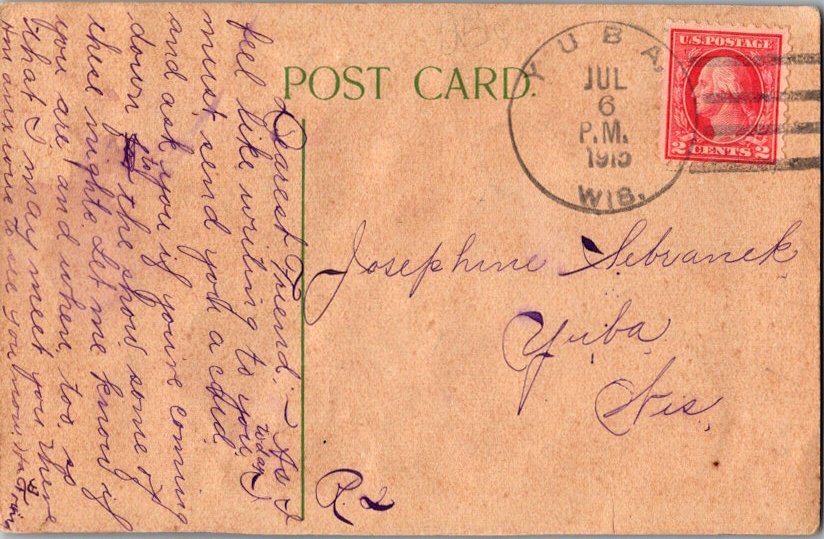 POST CARD.
YUBA,
JUL
6
P.M.
1915
WIS.
U.S. POSTAGE
2 CENTS 2
Josephine Sebranek
Yuba
Wis.
R. 2
Dearest Friend, - As I
feel like writing to you today I
must send you a card
and ask you if you're coming
down to the show some of
these nights. Let me know if
you are, and when, too, so
that I may meet you there
Am anxious to see you now.